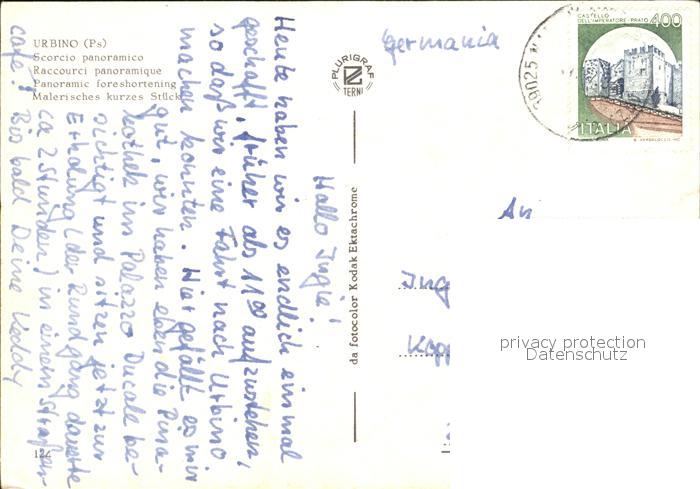 URBINO (Ps)
Scorcio panoramico
Raccourci panoramique
Panoramic foreshortening
Malerisches kurzes Stück
Hallo Ingie!
Heute haben wir es endlich einmal
geschafft, früher als 11⁰⁰ aufzustehen,
so daß wir eine Fahrt nach Urbino
machen konnten. Hier gefällt es mir
gut, wir haben eben die Pina-
kothek im Palazzo Ducale be-
sichtigt und sitzen jetzt zur
Erholung (der Rundgang dauerte
ca 2 Stunden) in einem Straßen-
café! Bis bald Deine Keddy
124
PLURIGRAF
TERNI
da fotocolor Kodak Ektachrome
Germania
CASTELLO
DELL'IMPERATORE · PRATO
400
ITALIA
An
Ing
Kopp
privacy protection
Datenschutz